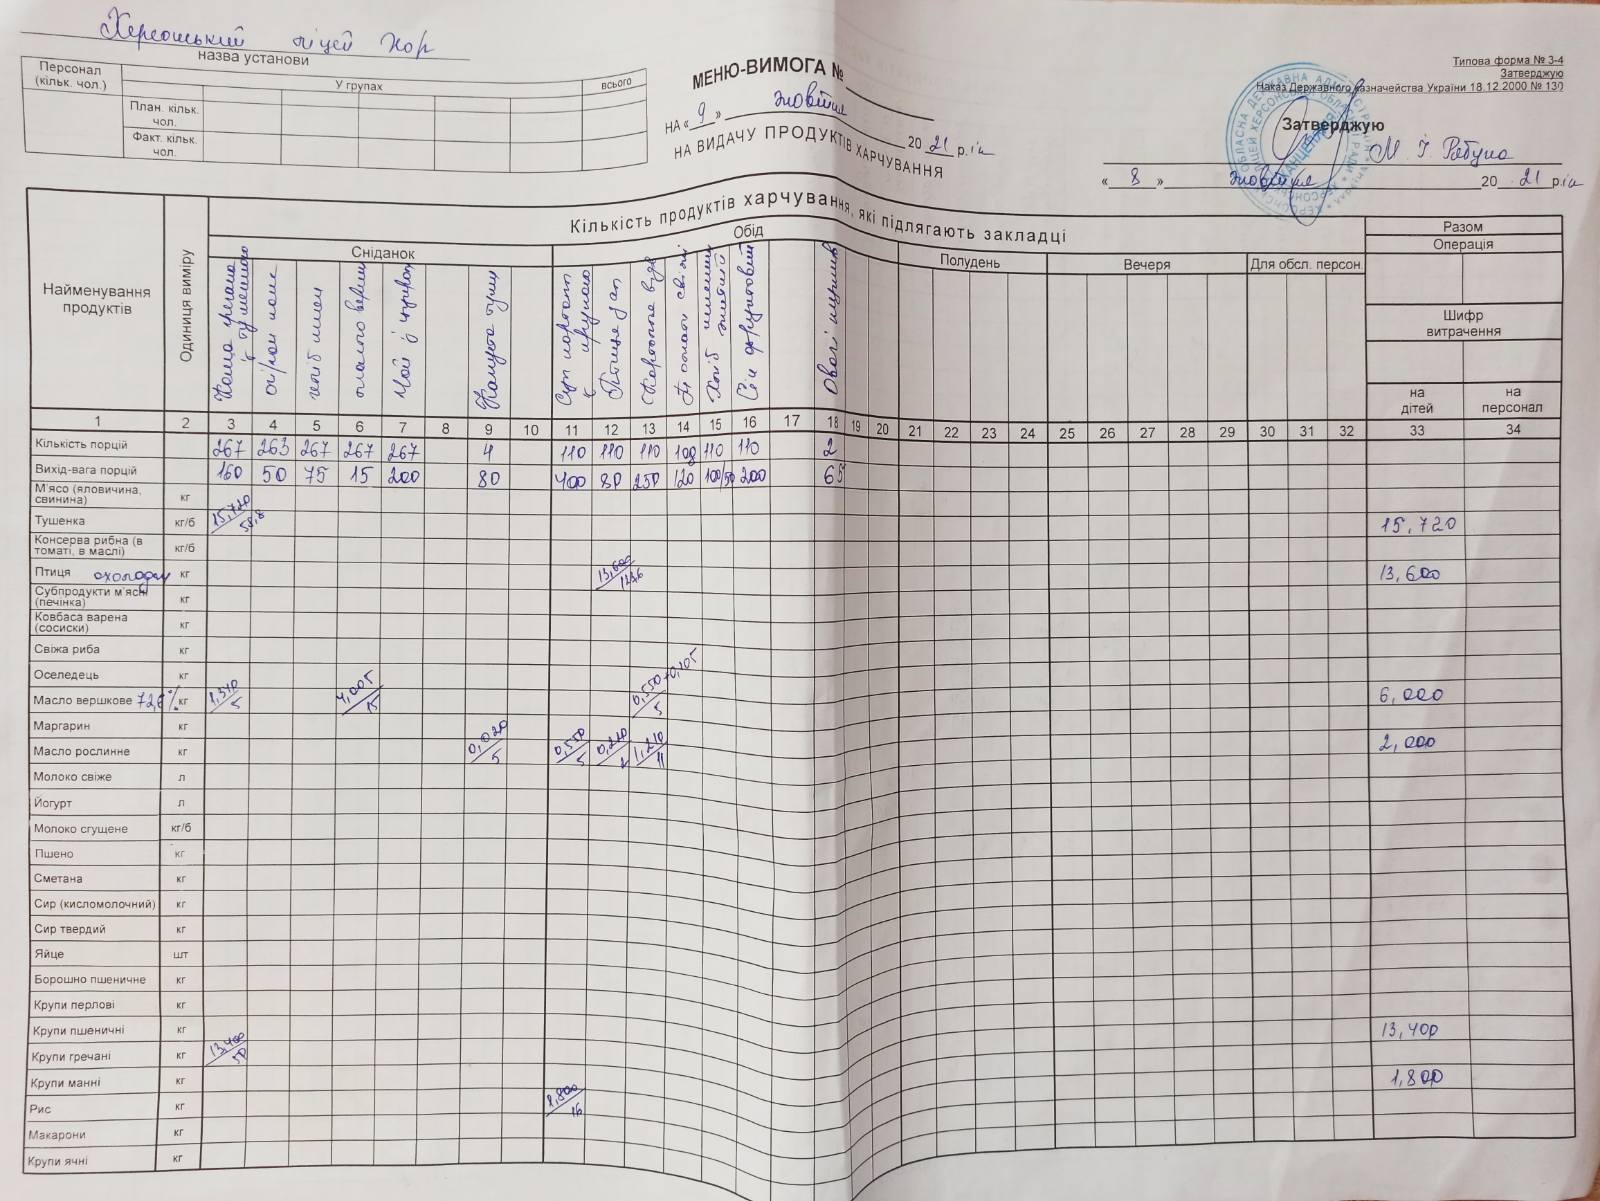 Херсонський ліцей ХОР
назва установи
Персонал (кільк. чол.)
У групах
всього
План. кільк. чол.
Факт. кільк. чол.
МЕНЮ-ВИМОГА №
НА « 9 » жовтня 20 21 р.
НА ВИДАЧУ ПРОДУКТІВ ХАРЧУВАННЯ
Типова форма № З-4
Затверджую
Наказ Державного казначейства України 18.12.2000 № 130
Затверджую
« 8 » жовтня 20 21 р.
Найменування продуктів
Одиниця виміру
Кількість продуктів харчування, які підлягають закладці
Разом
Сніданок
Обід
Полудень
Вечеря
Для обсл. персон.
Операція
Шифр витрачення
на дітей
на персонал
1 2 3 4 5 6 7 8 9 10 11 12 13 14 15 16 17 18 19 20 21 22 23 24 25 26 27 28 29 30 31 32 33 34
Кількість порцій 267 263 267 267 267 4 110 110 110 108 110 110 2
Вихід-вага порцій 160 50 75 15 200 80 400 80 250 120 100/50 200 65
М'ясо (яловичина, свинина) кг
Тушенка кг/б 15,720/58,8 15,720
Консерва рибна (в томаті, в маслі) кг/б
Птиця кг 13,600/123,6 13,600
Субпродукти м'ясні (печінка) кг
Ковбаса варена (сосиски) кг
Свіжа риба кг
Оселедець кг
Масло вершкове 72,6% кг 1,340/5 4,005/15 0,550+0,105/5 6,000
Маргарин кг
Масло рослинне кг 0,020/5 0,550/5 0,220/2 1,210/11 2,000
Молоко свіже л
Йогурт л
Молоко сгущене кг/б
Пшено кг
Сметана кг
Сир (кисломолочний) кг
Сир твердий кг
Яйце шт
Борошно пшеничне кг
Крупи перлові кг
Крупи пшеничні кг 13,400
Крупи гречані кг 13,400/50
Крупи манні кг 1,800
Рис кг 1,800/16
Макарони кг
Крупи ячні кг